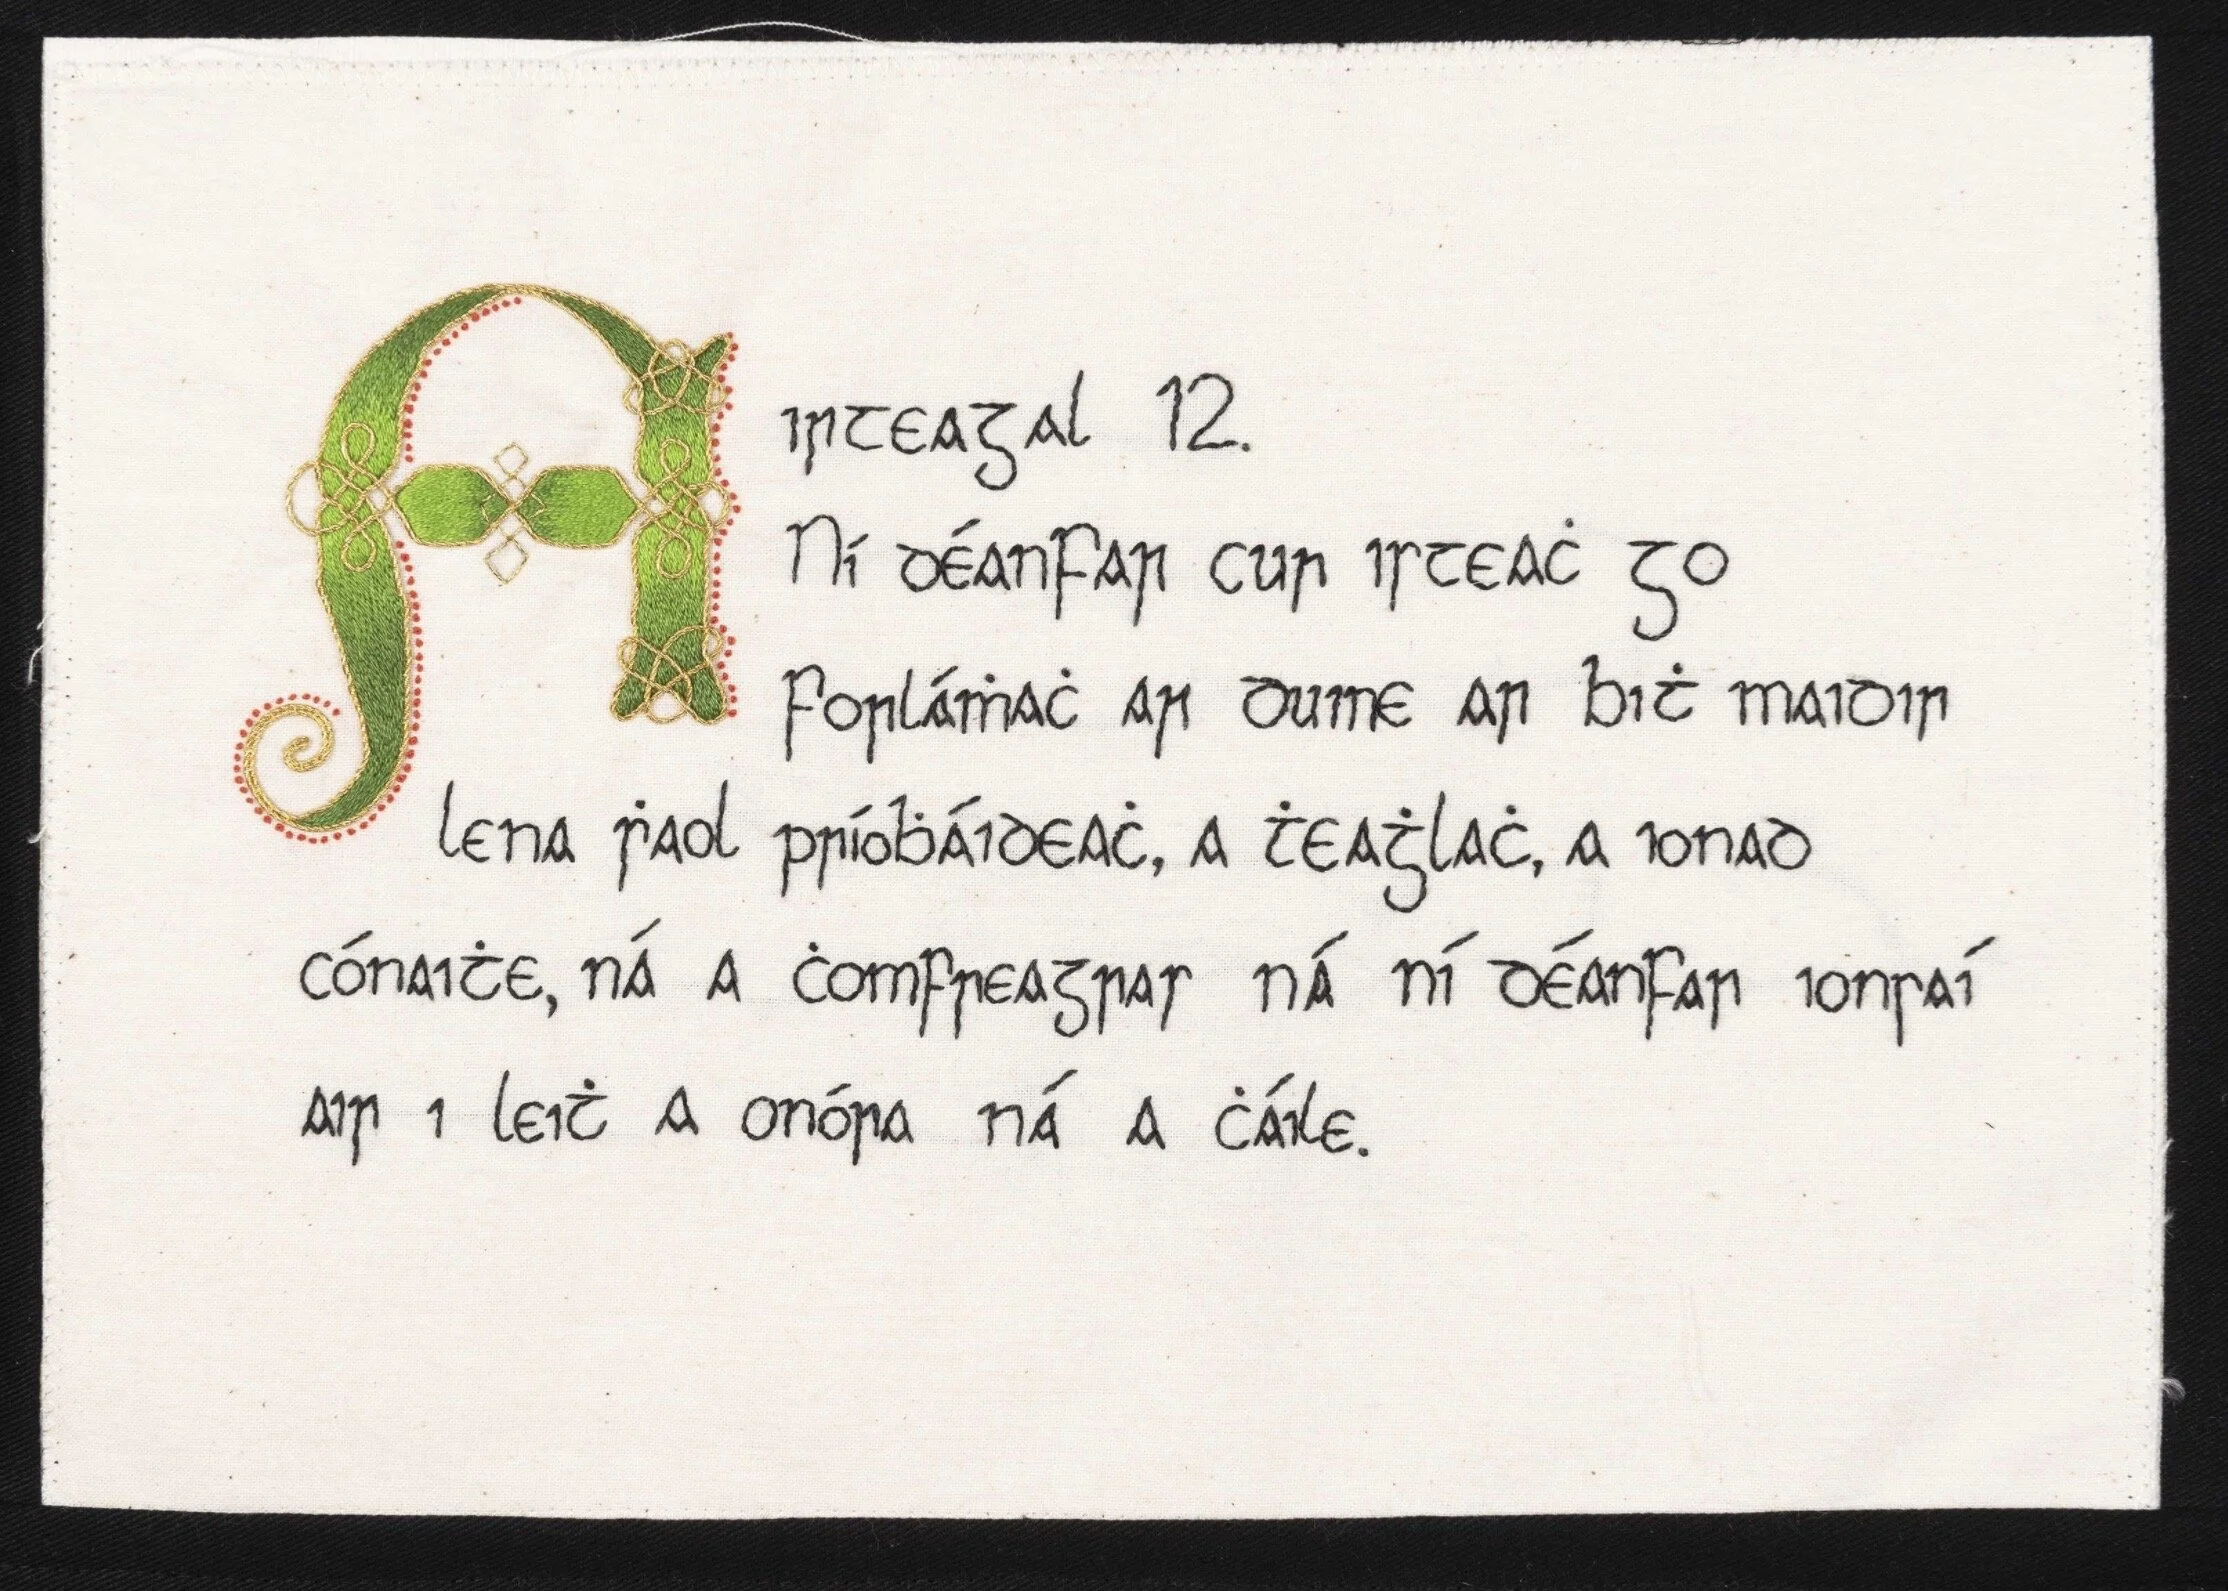 Airteagal 12.
Ní déanfar cur isteaċ go
forláṁaċ ar duine ar biṫ maidir
lena ṡaol príoḃáideaċ, a ṫeaġlaċ, a ionad
cónaiṫe, ná a ċomfreagras ná ní déanfar ionsaí
air i leiṫ a onóra ná a ċáile.